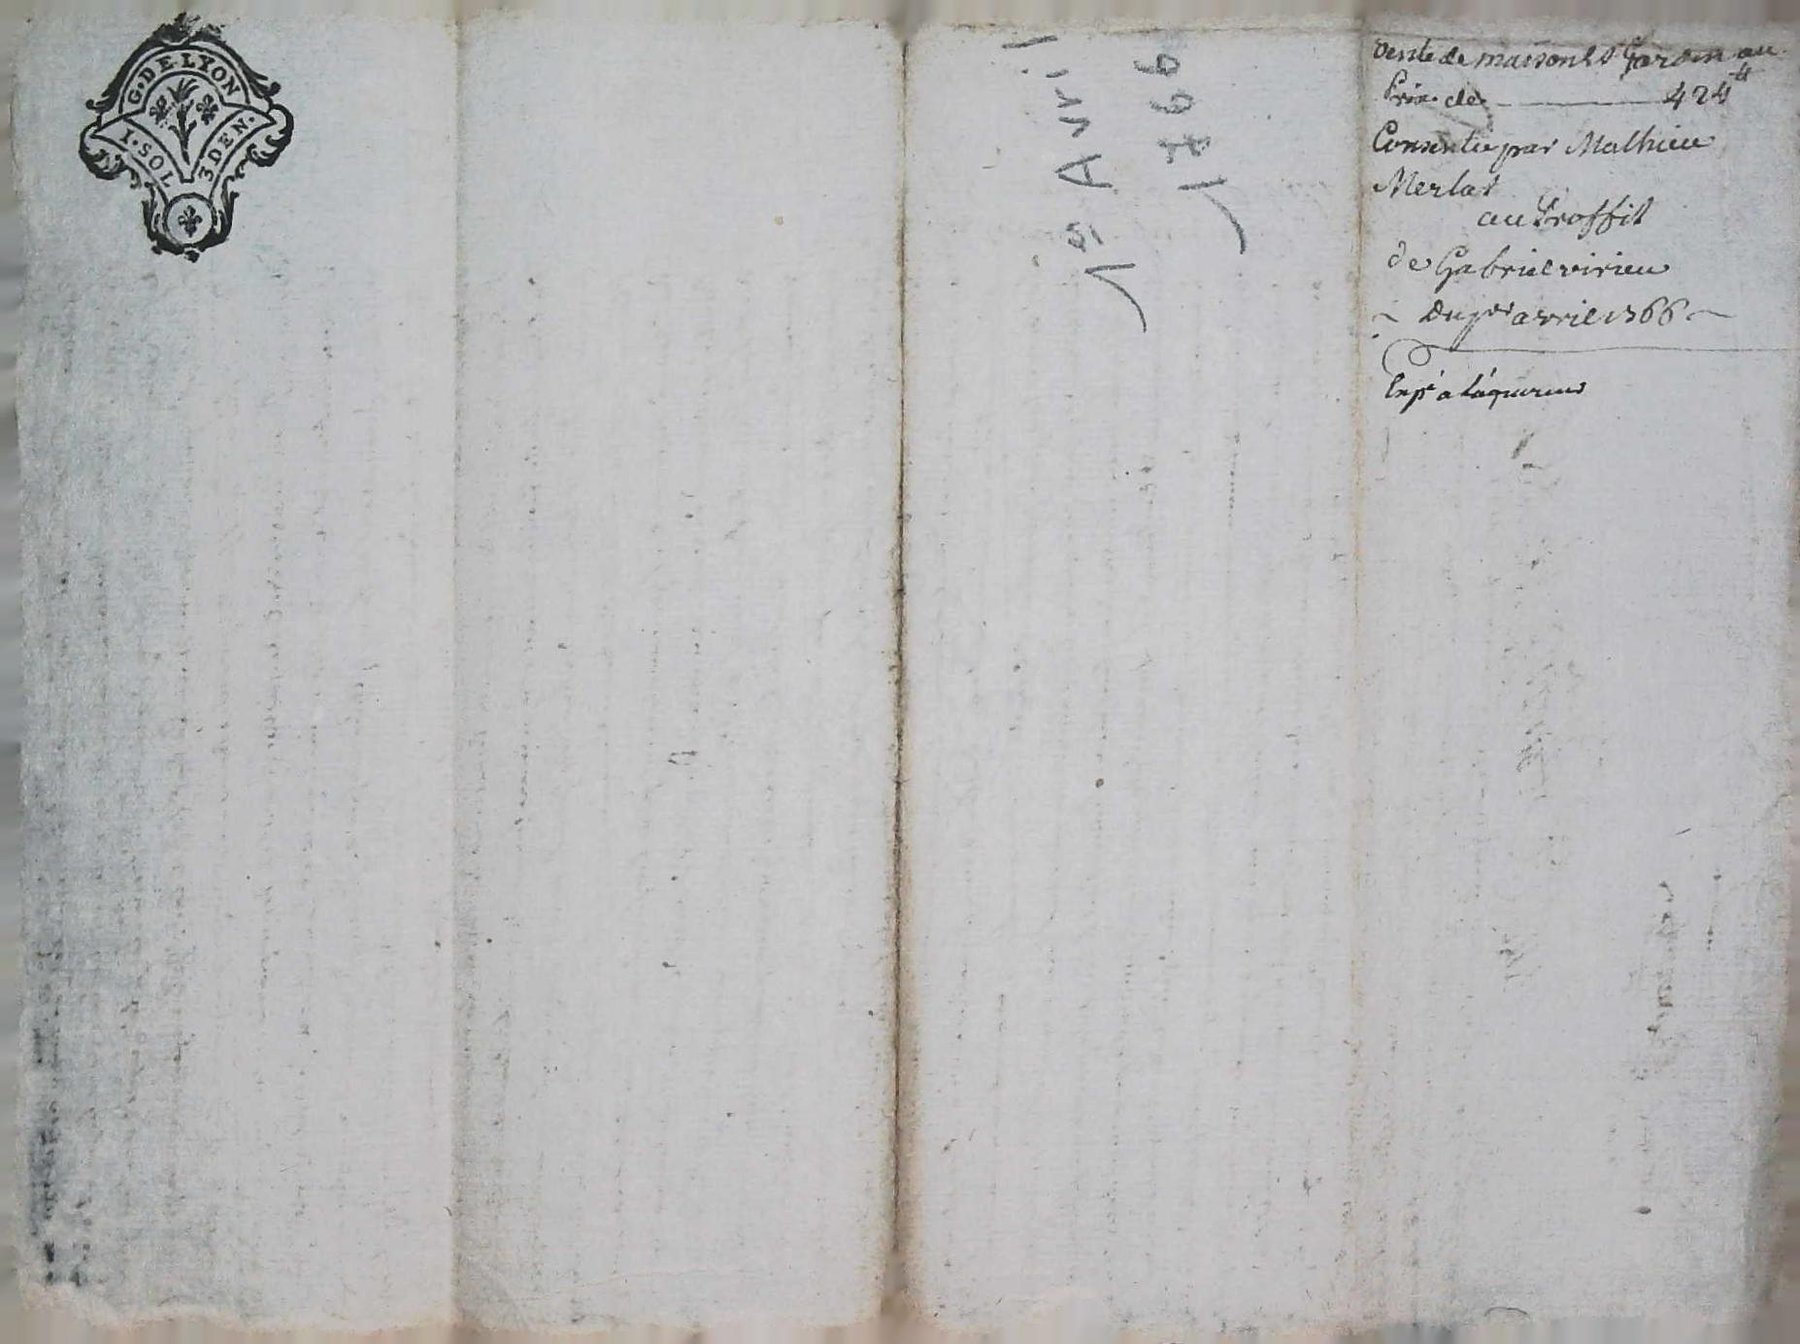 G. DE LYON
I. SOL 3 DEN.
1er Avril
1766
vente de maison et Jardin au
Prix de 424 ₶
Consentie par Mathieu
Merlat
au Proffit
de Gabriel virieu
Du per avril 1766
Expé à láquereur